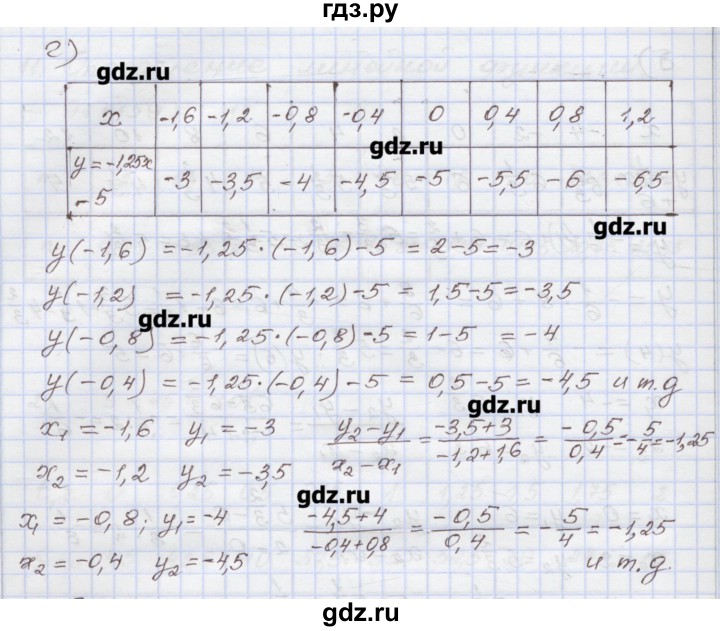 гдз.ру
г)
gdz.ru
x -1,6 -1,2 -0,8 -0,4 0 0,4 0,8 1,2
gdz.ru
y=-1,25x -5 -3 -3,5 -4 -4,5 -5 -5,5 -6 -6,5
gdz.ru
y(-1,6) = -1,25·(-1,6)-5 = 2-5=-3
y(-1,2) = -1,25·(-1,2)-5 = 1,5-5=-3,5
gdz.ru
y(-0,8) = -1,25·(-0,8)-5 = 1-5 = -4
y(-0,4) = -1,25·(-0,4)-5 = 0,5-5=-4,5 и т.д
gdz.ru
x₁ = -1,6 y₁ = -3 (y₂-y₁)/(x₂-x₁) = (-3,5+3)/(-1,2+1,6) = (-0,5)/(0,4) = -5/4 = -1,25
x₂ = -1,2 y₂ = -3,5
gdz.ru
x₁ = -0,8; y₁ = -4 (-4,5+4)/(-0,4+0,8) = (-0,5)/(0,4) = -5/4 = -1,25
x₂ = -0,4 y₂ = -4,5 и т.д.
gdz.ru